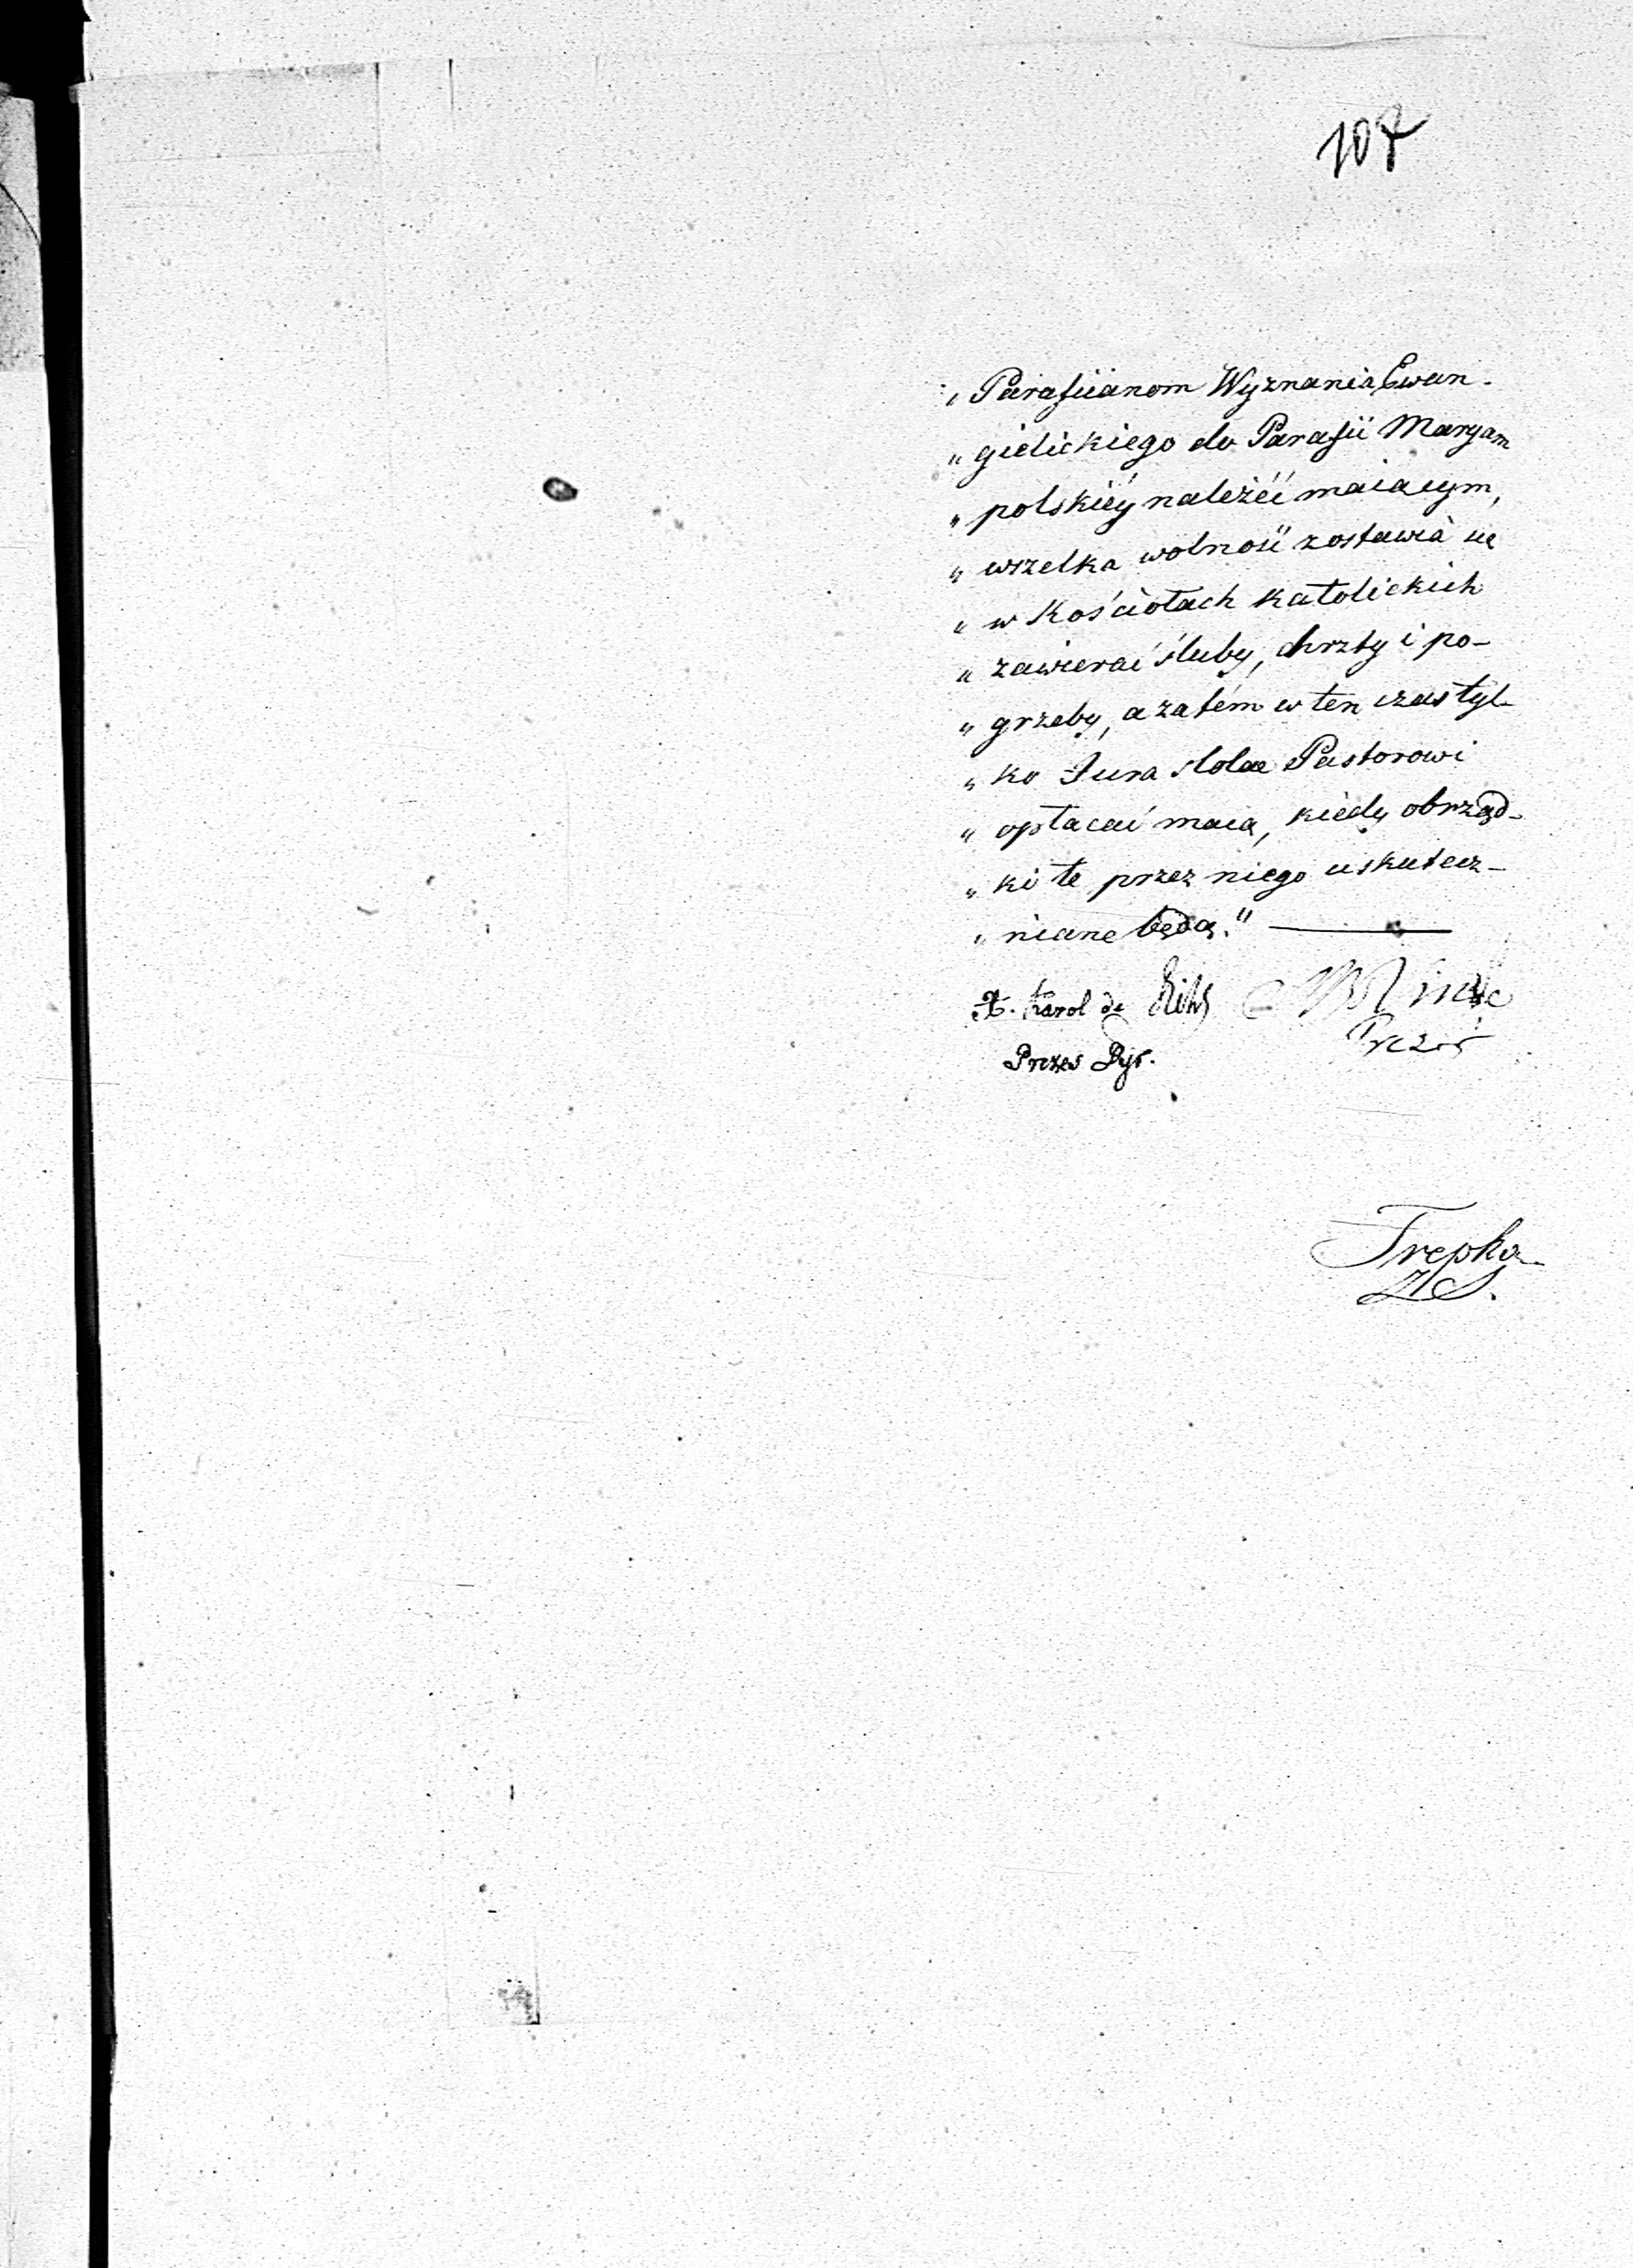 107
„ Parafiianom Wyznania Ewan-
„ gielickiego do Parafii Maryam
„ polskiéy należéć maiącym,
„ wszelka wolność zostawia się
„ w Kościołach Katolickich
„ zawierać śluby, chrzty i po-
„ grzeby, a zatém w ten czas tyl-
„ ko Jura stolae Pastorowi
„ opłacać maią, kiedy obrząd-
„ ki te przez niego uskutecz-
„ niane będą."
X. Karol de
Prezes Dyr.
Prezes
Trepka
Z S.